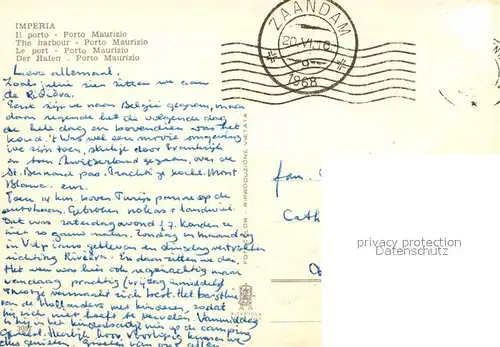 IMPERIA
Il porto - Porto Maurizio
The harbour - Porto Maurizio
Le port - Porto Maurizio
Der Hafen - Porto Maurizio
ZAANDAM
1968
Lieve allemaal.
Zoals jullie zien zitten we aan
de Rivièra.
Eerst zijn we naar België gegaan, maar
daar regende het de volgende dag
de hele dag en bovendien was het
koud. 't Was wel een mooie omgeving
we zijn toen, stukje door Frankrijk
en toen Zwitserland gegaan, over de
St. Bernard pas. Prachtige tocht. Mont
Blanc. enz.
Toen, 4 km. boven Turijn panne op de
autobaan. Gebroken
Dat was zaterdagavond
niet zo gauw maken. Zondag en maandag
in Turijn gebleven en dinsdag vertrokken
richting Riviera. En daar zitten we dan.
Het weer was hier ook regenachtig maar
vandaag prachtig (vrijdagmiddag)
van de Hollanders met kinderen, zodat
hij zich niet hoeft te vervelen. Vanmiddag
is hij in het kinderbadje op de camping
geweest. Heerlijk hoor. Voorlopig kunnen we
Groeten van ons allen
FOTOCOLOR - RIPRODUZIONE VIETATA
fam.
Cath
privacy protection
Datenschutz